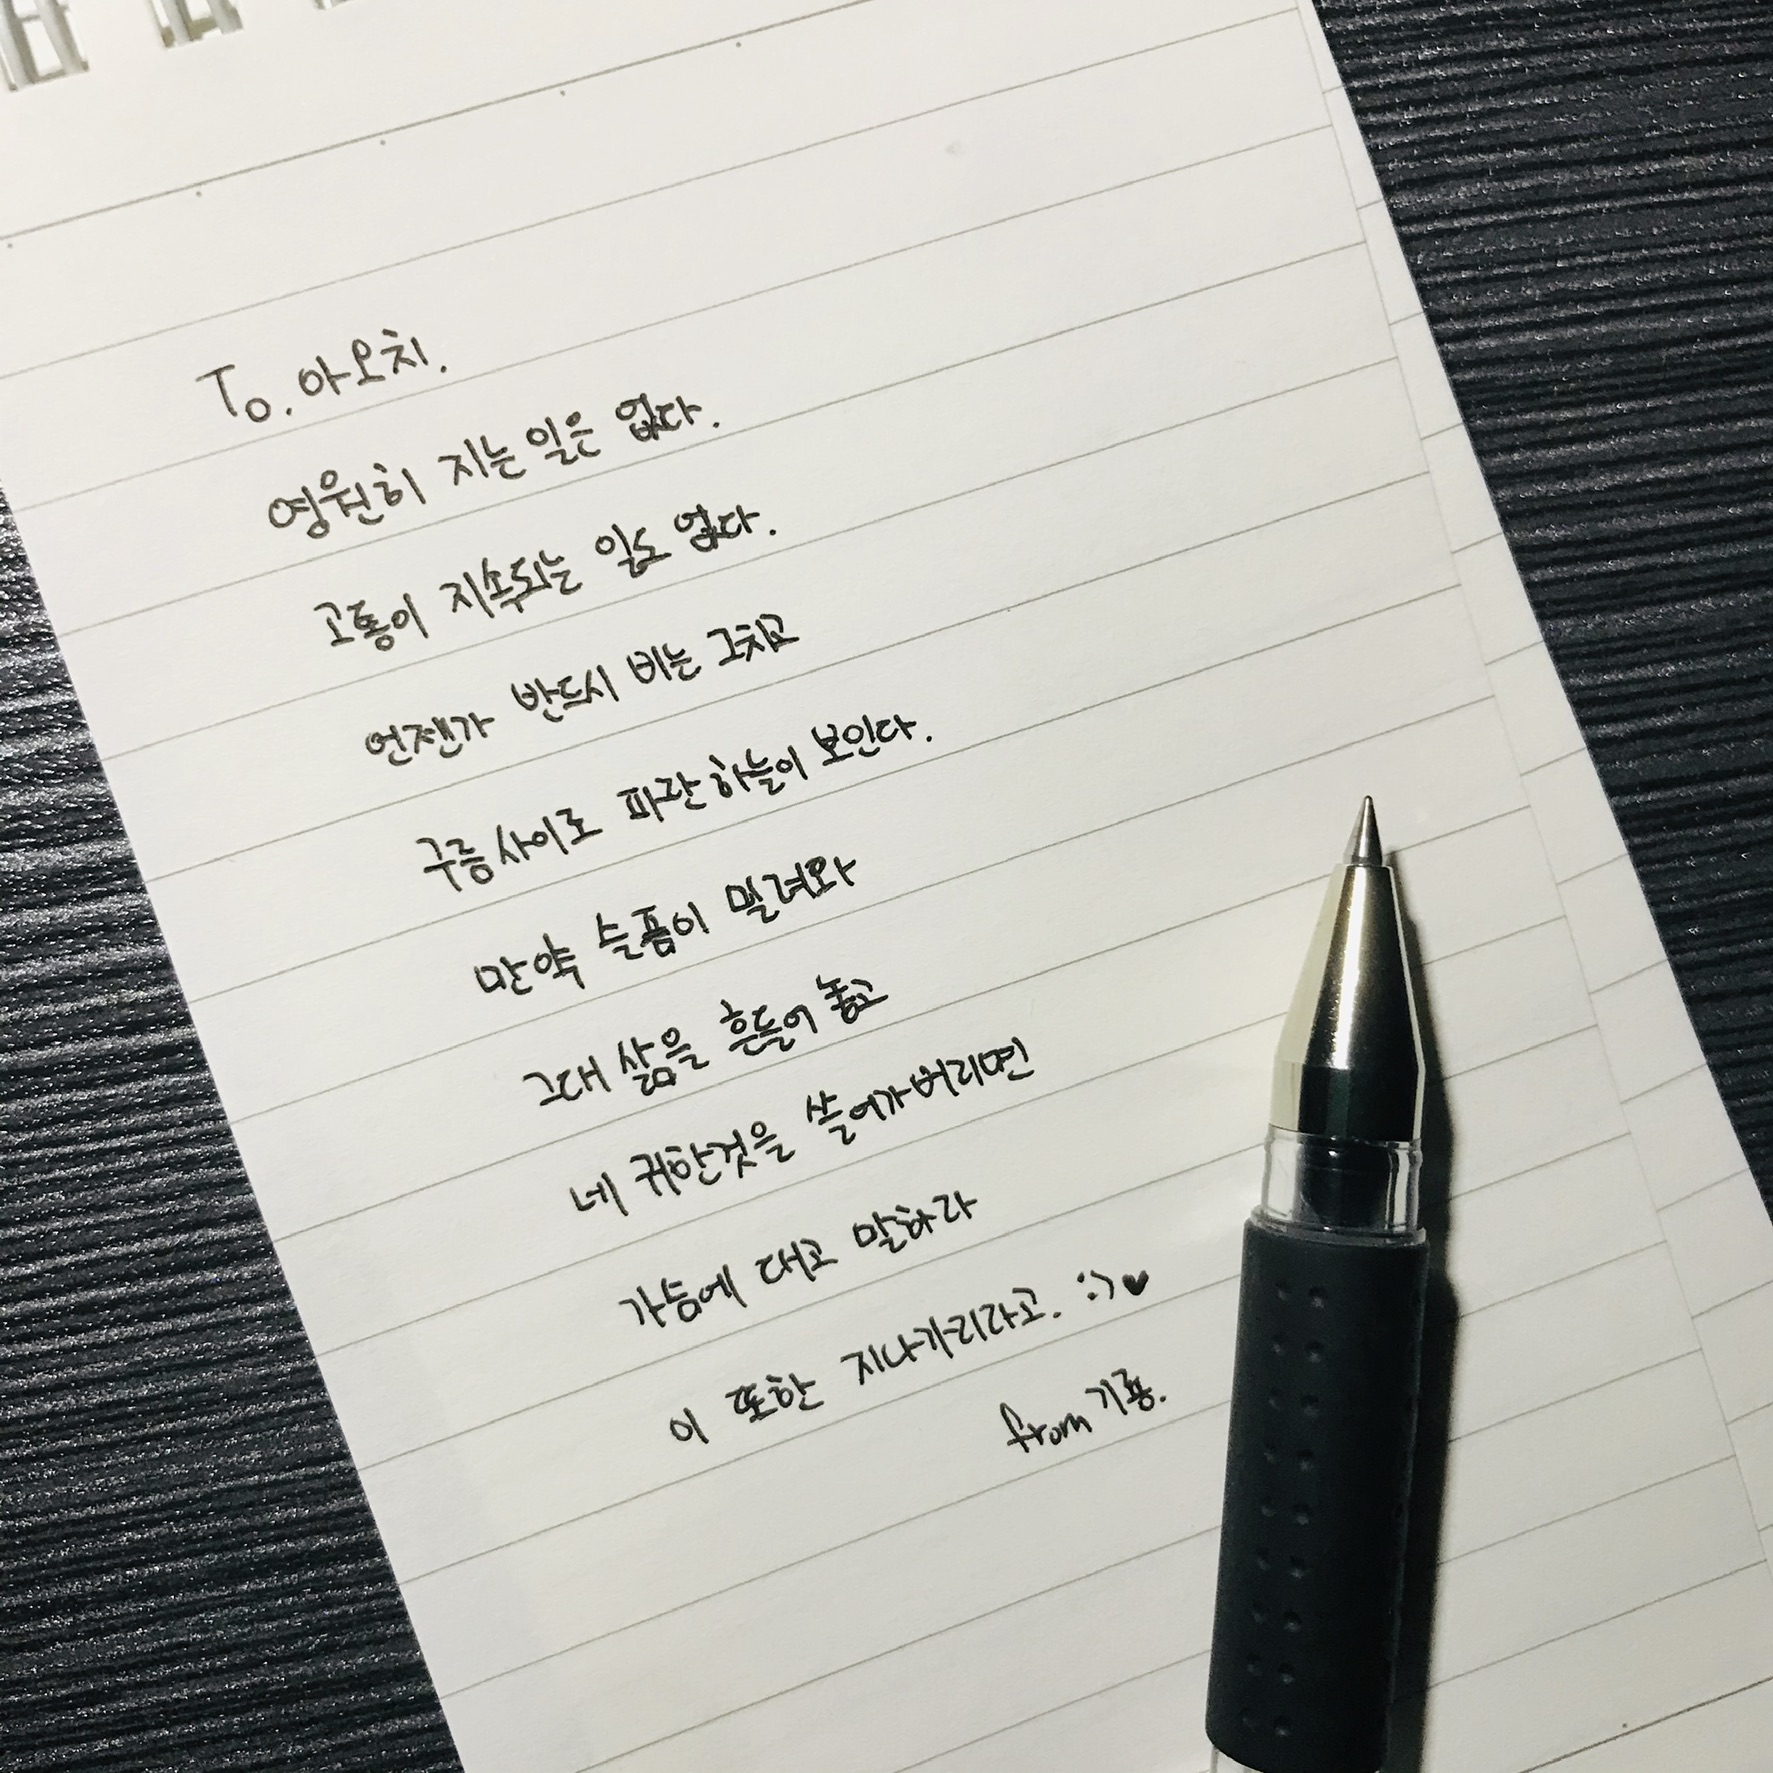 To. 아오치.
영원히 지는 일은 없다.
고통이 지속되는 일도 없다.
언젠가 반드시 비는 그치고
구름 사이로 파란 하늘이 보인다.
만약 슬픔이 밀려와
그대 삶을 흔들어 놓고
네 귀한것을 쓸어가 버리면
가슴에 대고 말하라
이 또한 지나가리라고. :)♥
from 기용.